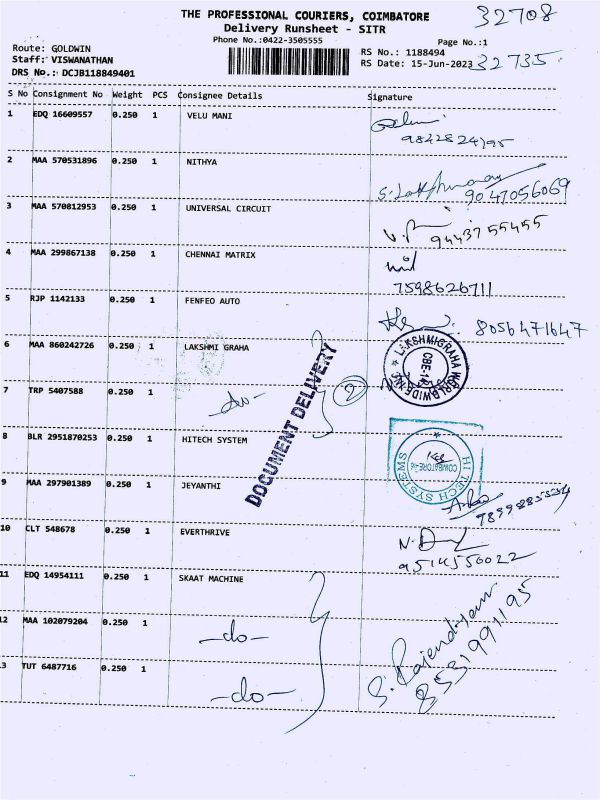 THE PROFESSIONAL COURIERS, COIMBATORE 32708
Delivery Runsheet - SITR
Phone No.:0422-3505555 Page No.:1
Route: GOLDWIN RS No.: 1188494
Staff: VISWANATHAN RS Date: 15-Jun-2023 32735
DRS No.: DCJB118849401
S No Consignment No Weight PCS Consignee Details Signature
1 EDQ 16609557 0.250 1 VELU MANI
9842824795
2 MAA 570531896 0.250 1 NITHYA
S. Lakshmanan
9047056069
3 MAA 570812953 0.250 1 UNIVERSAL CIRCUIT
9443755455
4 MAA 299867138 0.250 1 CHENNAI MATRIX
7598626711
5 RJP 1142133 0.250 1 FENFEO AUTO
8056471647
6 MAA 860242726 0.250 1 LAKSHMI GRAHA
LAKSHMIGRAHA WORLDWIDE INC
CBE-14
DOCUMENT DELIVERY
2
7 TRP 5407588 0.250 1 -do-
8 BLR 2951870253 0.250 1 HITECH SYSTEM
HI TECH SYSTEMS
COIMBATORE
9 MAA 297901389 0.250 1 JEYANTHI
10 CLT 548678 0.250 1 EVERTHRIVE
9514556022
11 EDQ 14954111 0.250 1 SKAAT MACHINE
12 MAA 102079204 0.250 1 -do-
S. Rajendiyan
8531991195
13 TUT 6487716 0.250 1 -do-